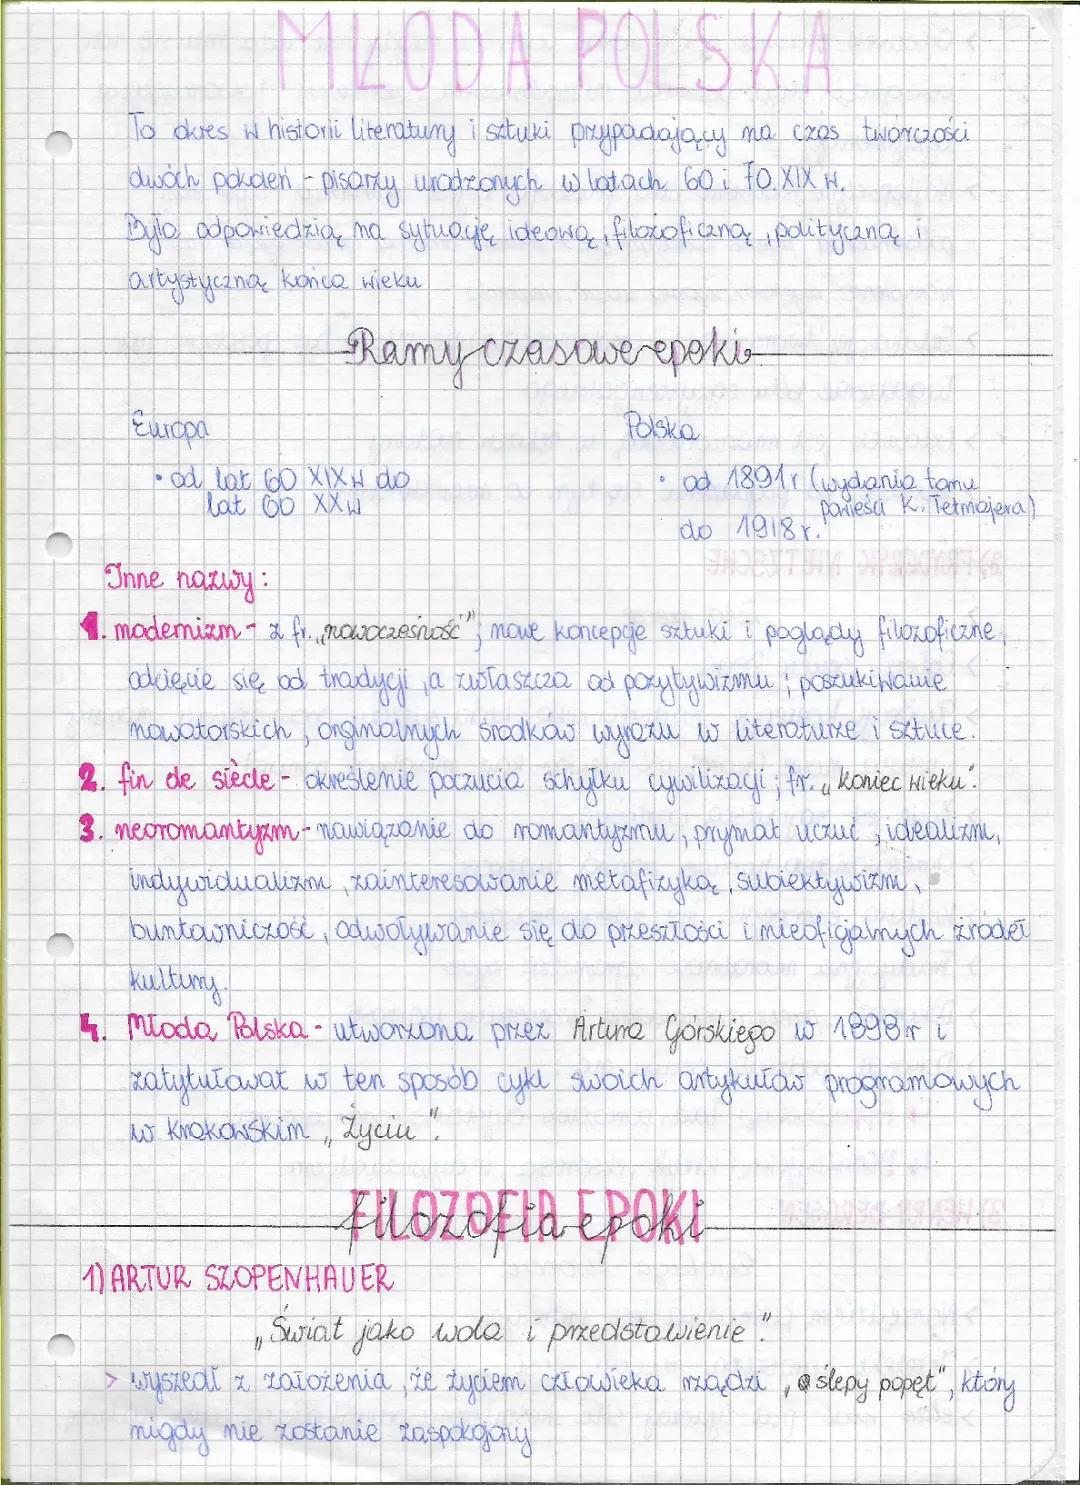 MŁODA POLSKA
To okres w historii literatury i sztuki przypadający na czas twórczości
dwóch pokoleń - pisarzy urodzonych w latach 60 i 70. XIX w.
Była odpowiedzią na sytuację ideową, filozoficzną, polityczną i
artystyczną końca wieku
Ramy czasowe epoki
Europa
• od lat 60 XIX w do
lat 60 XX w
Polska
• od 1891r (wydania tomu
powieści K. Tetmajera)
do 1918r.
Inne nazwy:
1. modernizm - z fr. „nowoczesność"; nowe koncepcje sztuki i poglądy filozoficzne,
odcięcie się od tradycji, a zwłaszcza od pozytywizmu; poszukiwanie
nowatorskich, orginalnych środków wyrazu w literaturze i sztuce.
2. fin de siècle - określenie poczucia schyłku cywilizacji; fr. „koniec wieku".
3. neoromantyzm - nawiązanie do romantyzmu, prymat uczuć, idealizm,
indywidualizm, zainteresowanie metafizyką, subiektywizm,
buntowniczość, odwoływanie się do przeszłości i nieoficjalnych źródeł
kultury.
4. Młoda Polska - utworzona przez Artura Górskiego w 1898r i
zatytułował w ten sposób cykl swoich artykułów programowych
w krakowskim „Życiu".
FILOZOFIA EPOKI
1) ARTUR SZOPENHAUER
„Świat jako wola i przedstawienie"
> wyszedł z założenia, że życiem człowieka rządzi „ślepy popęt", który
nigdy nie zostanie zaspokojony